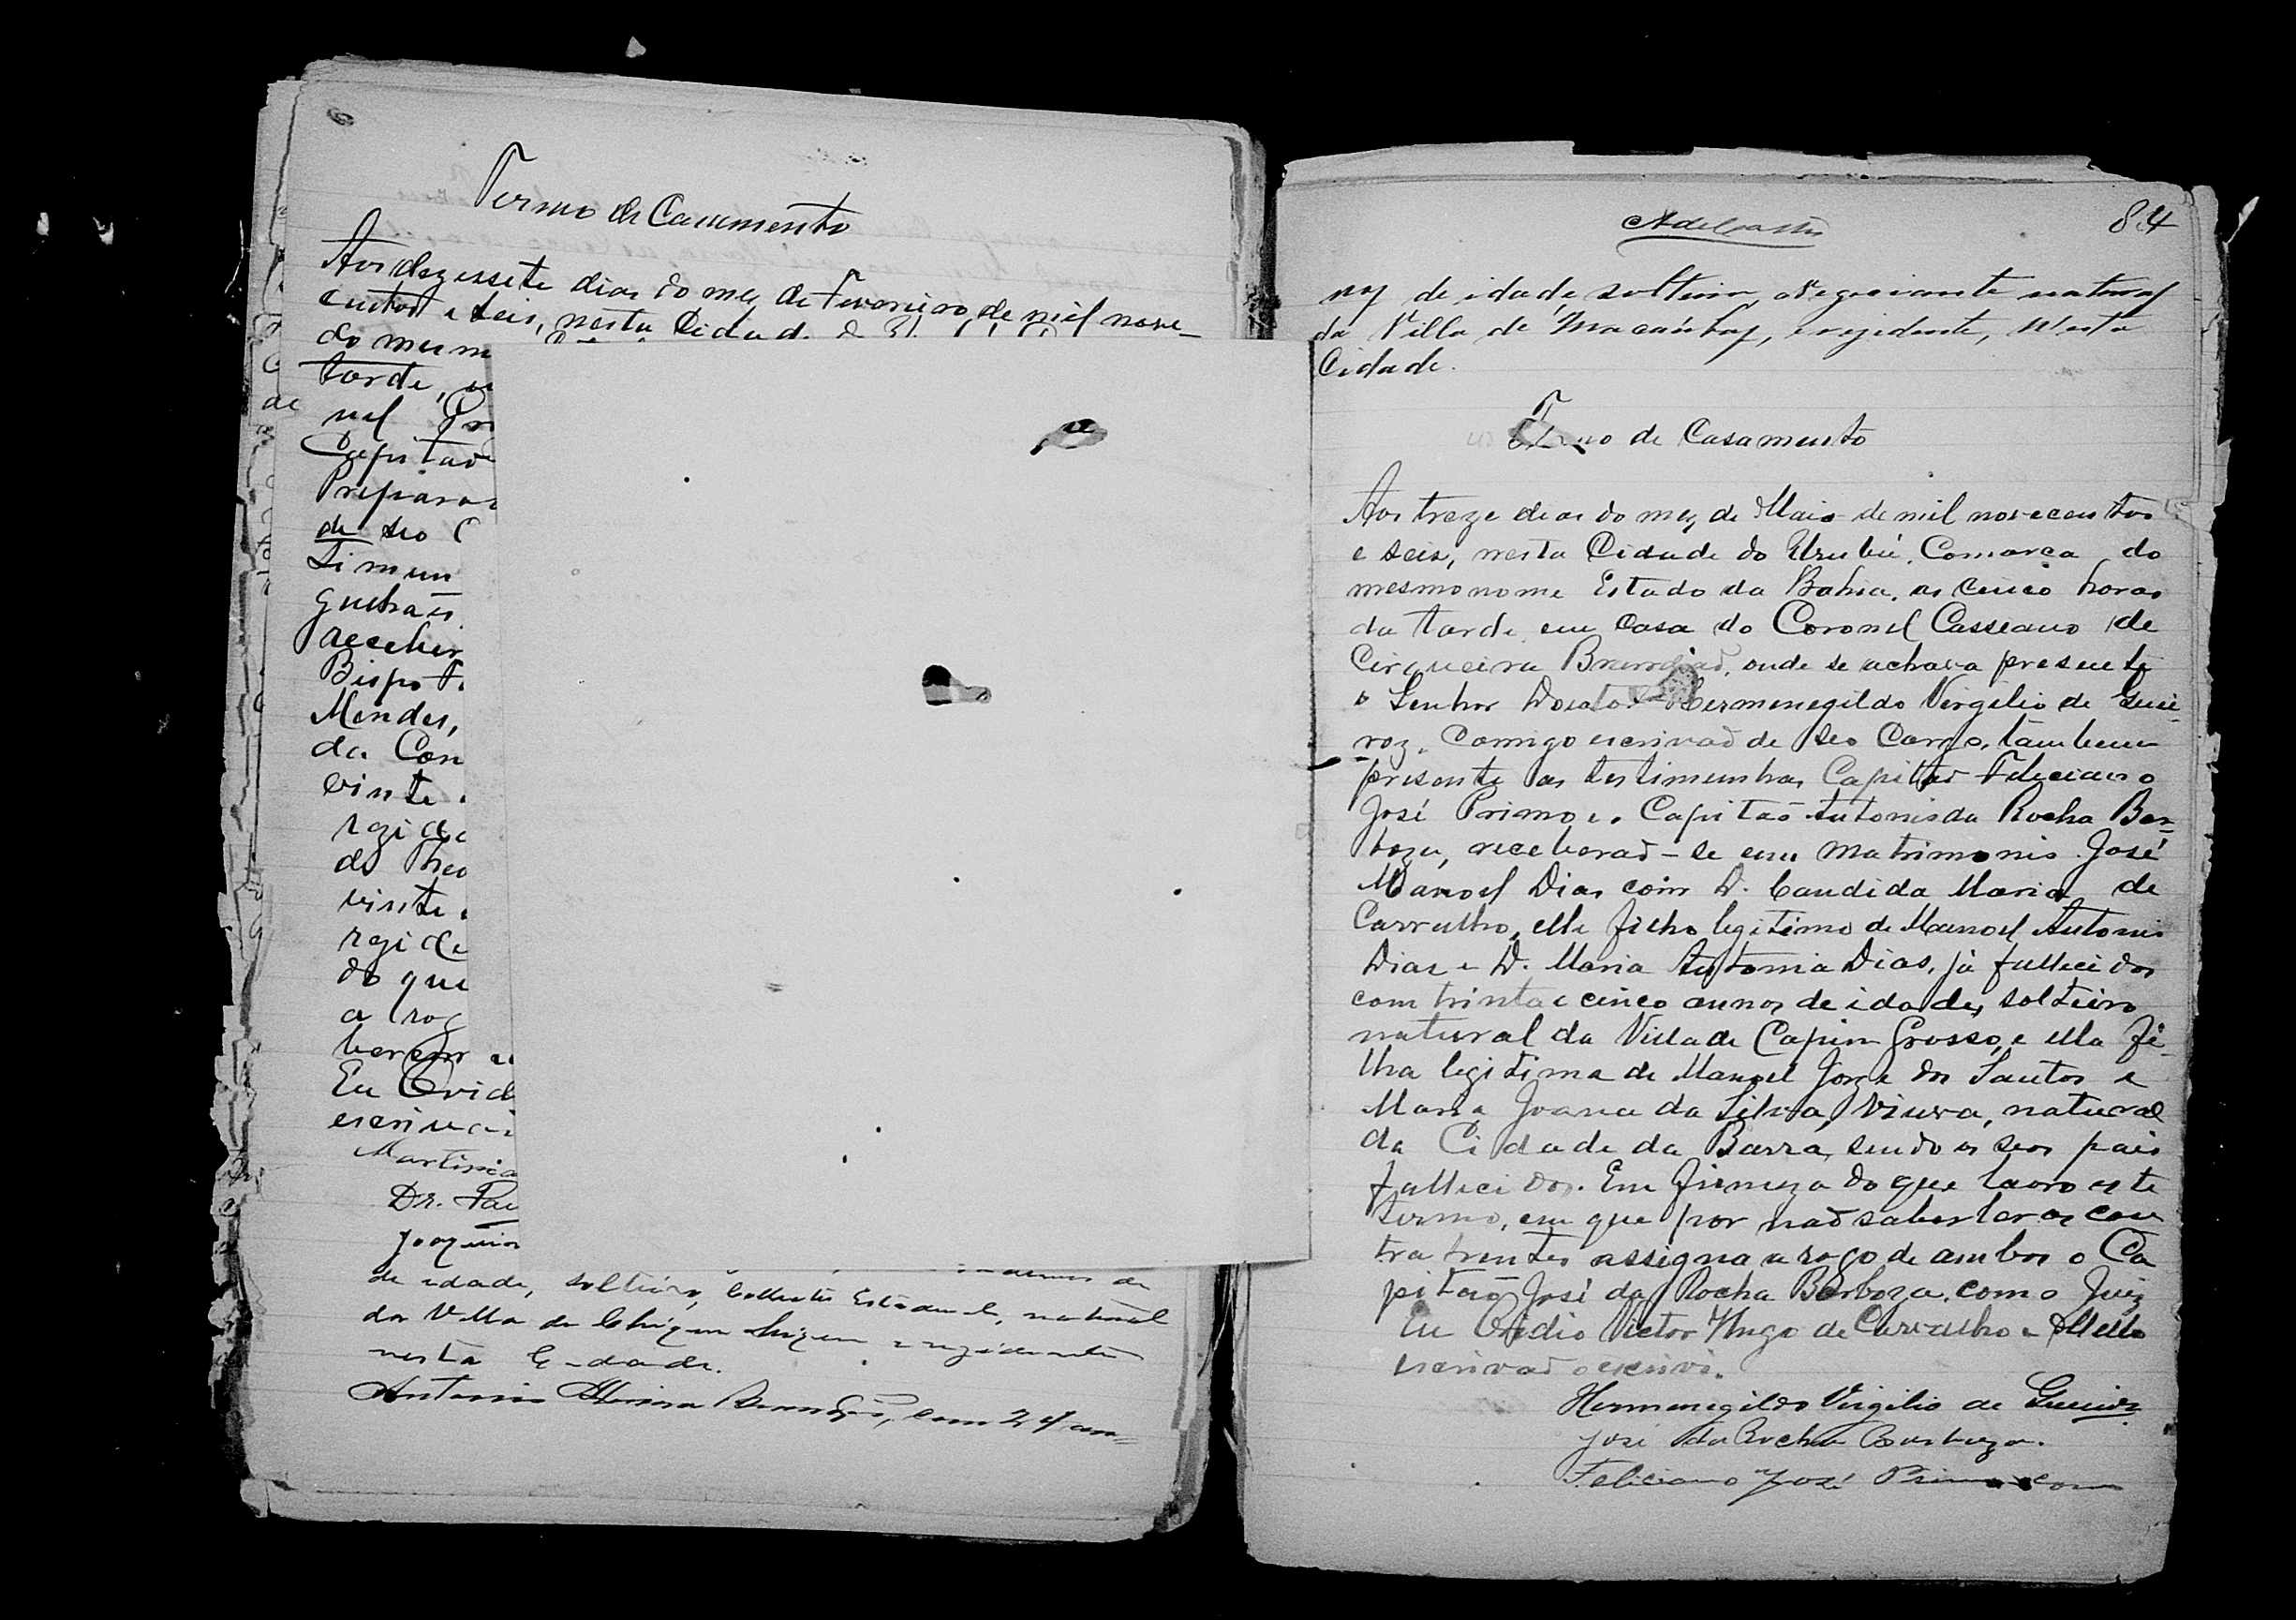 6
Termo de Casamento
Aos dezessete dias do mez de Fevereiro de mil nove-
centos e seis, nesta Cidade
do mesm
tarde,
nel
Capitão
Prepara
de seo C
Timun
Guehaes
receber
Bispo F
Mendes,
da Com
vinte
rezide
de Theo
vinte
rezide
do que
a rog
berem
Eu Ovid
escriva
Martinia
Dr. Fau
Joaquim
de idade, solteiro, Collector Estadual, natural
da Villa de Chique-Chique e rezidente
nesta Cidade.
Antonio Brandão, com 24 an=
84
nos de idade, solteiro, Negociante natural
da Villa de Macaúbas, e rezidente, Nesta
Cidade.
Termo de Casamento
Aos treze dias do mez de Maio de mil novecentos
e seis, nesta Cidade do Urubú, Comarca do
mesmo nome Estado da Bahia, as cinco horas
da tarde, em casa do Coronel Casseano de
Cirqueira Brandão, onde se achava presente
o Senhor Doutor Hermenegildo Virgilio de Guei-
roz, Comigo escrivaõ de seo Cargo, tambem
presente as testimunhas Capitaõ Feleciano
José Primo e Capitaõ Antonio da Rocha Bar-
boza, receberaõ-se em Matrimonio José
Manoel Dias com D. Candida Maria de
Carvalho, elle filho legitimo de Manoel Antonio
Dias e D. Maria Antonia Dias, já fallecidos
com trinta e cinco annos de idade, solteiro
natural da Villa de Capim Grosso, e ella fi-
lha legitima de Manoel Jorge dos Santos e
Maria Joana da Silva, viuva, natural
da Cidade da Barra, sendo os seos pais
fallecidos. Em firmeza do que lavro este
termo, em que por naõ saber ler os con
trahentes assigna a rogo de ambos o Ca
pitaõ José da Rocha Barboza, como Juiz
Eu Ovidio Victor Hugo de Carvalho e Mello
escrivaõ o escrevi.
Hermenegildo Virgilio de Gueiroz
José da Rocha Barboza.
Feliciano José Primo com